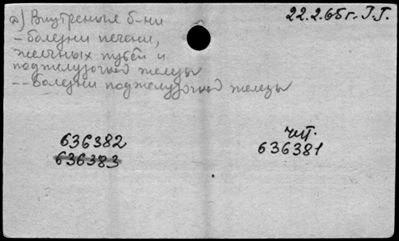 а) Внутренние б-ни
22.2.65г. Г.Г.
- болезни печени,
желчных путей и
поджелудочной железы
-- Болезни поджелудочной железы
636382
636383
чит.
636381